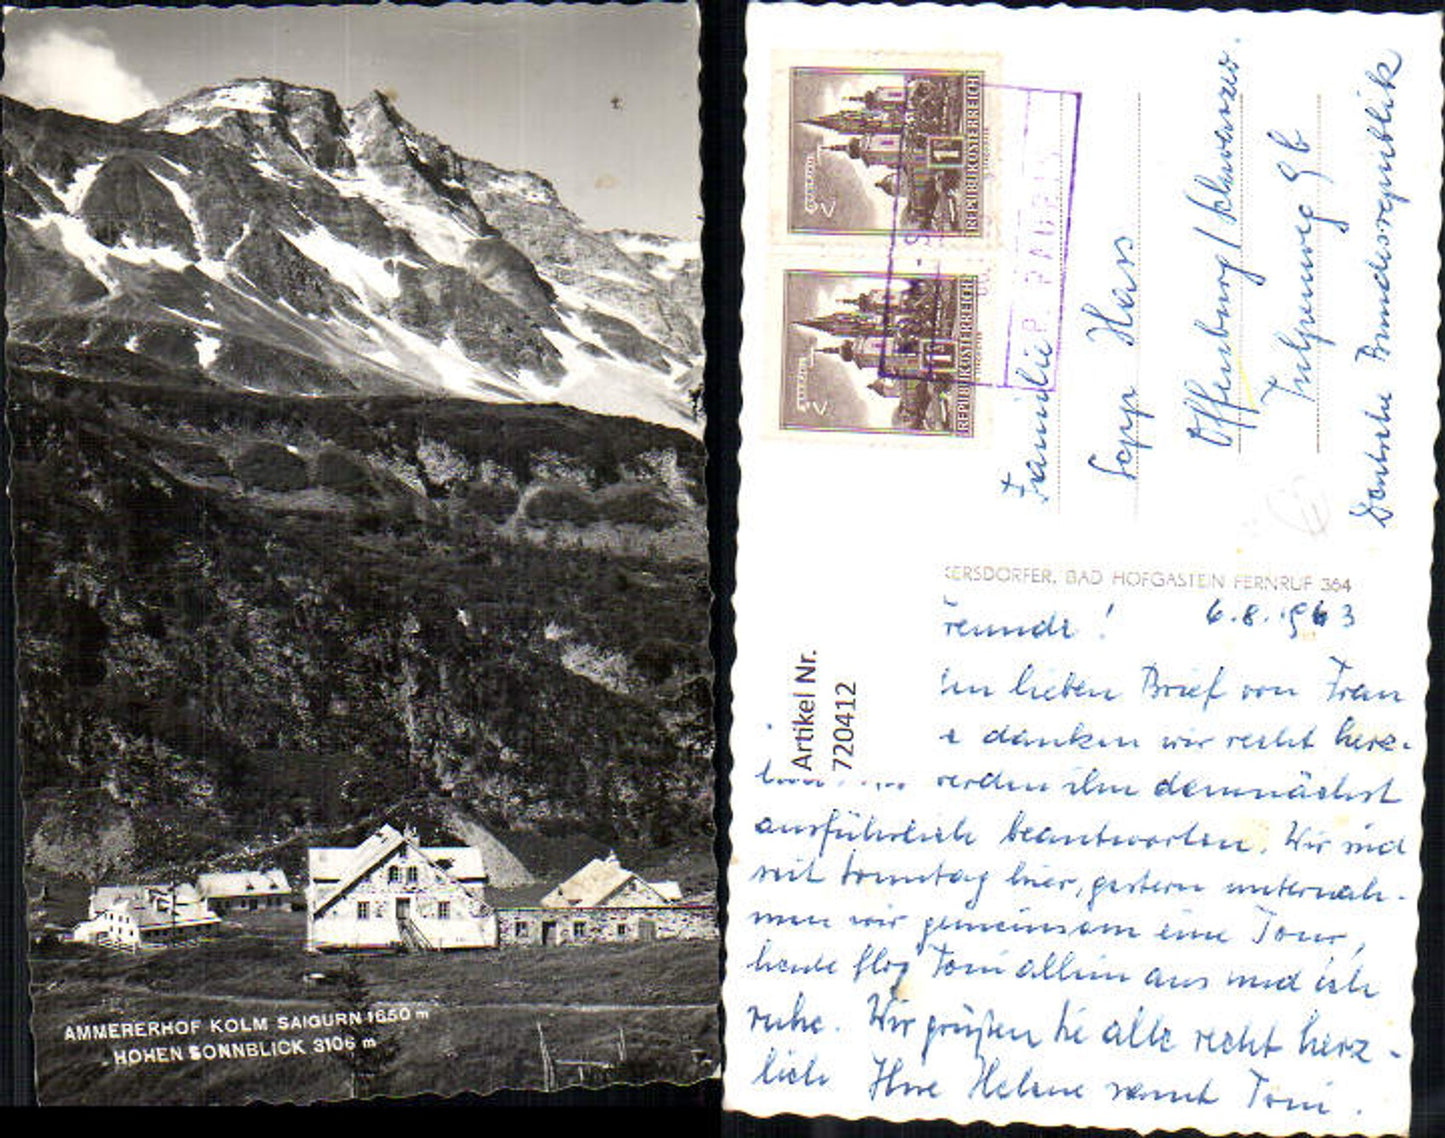 AMMERERHOF KOLM SAIGURN 1650 m
HOHEN SONNBLICK 3106 m
REPUBLIK ÖSTERREICH
1
REPUBLIK ÖSTERREICH
1
Familie
Sepp Hass
Offenburg/Schwarzw.
Tulpenweg 9b
Deutsche Bundesrepublik
ERSDORFER, BAD HOFGASTEIN FERNRUF 364
Artikel Nr.
720412
reunde! 6.8.1963
en lieben Brief von Frau
e danken wir recht herz-
erden ihn demnächst
ausführlich beantworten. Wir sind
seit Sonntag hier, gestern unternah-
men wir gemeinsam eine Tour,
heute flog Toni allein aus und ich
ruhe. Wir grüßen Sie alle recht herz-
lich Ihre Helene samt Toni.